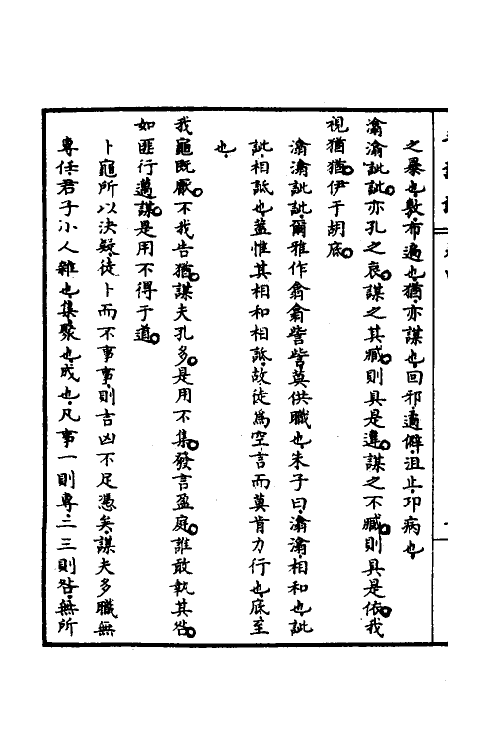 之暴也敷布遍也猶亦謀也回邪遹僻沮止邛病也
潝潝訿訿亦孔之哀謀之其臧則具是違謀之不臧則具是依我
視猶猶伊于胡底
潝潝訿訿爾雅作翕翕訾訾莫供職也朱子曰潝潝相和也訿
訿相詆也蓋惟其相和相詆故徒為空言而莫肯力行也底至
也
我龜既厭不我告猶謀夫孔多是用不集發言盈庭誰敢執其咎
如匪行邁謀是用不得于道
卜龜所以決疑徒卜而不事事則吉凶不足憑矣謀夫多職無
專任君子小人雜也集聚也成也凡事一則專二三則咎無所